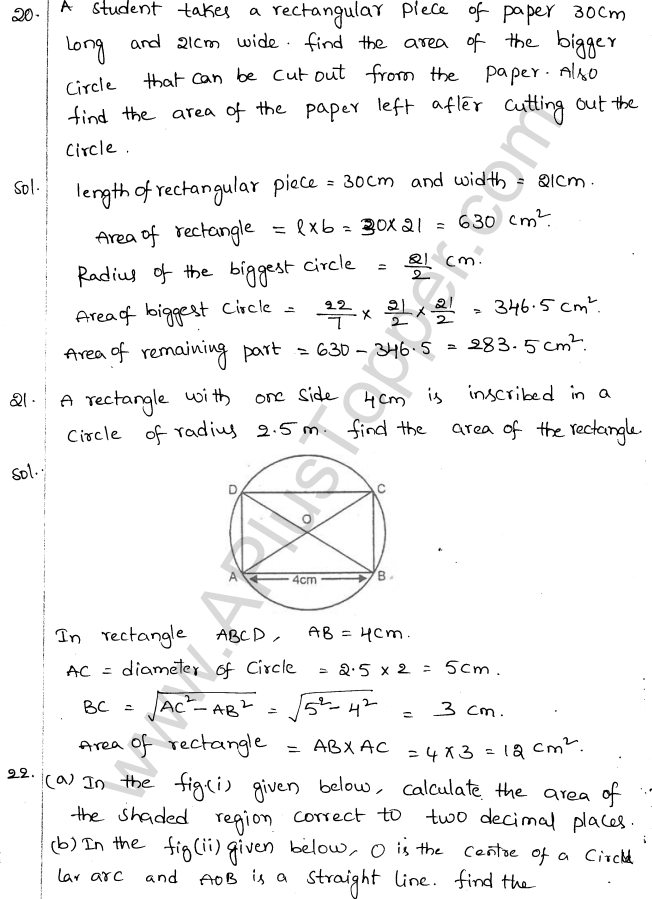 20. A student takes a rectangular piece of paper 30cm
long and 21cm wide. find the area of the bigger
circle that can be cut out from the paper. Also
find the area of the paper left after cutting out the
circle.
Sol. length of rectangular piece = 30cm and width = 21cm.
Area of rectangle = l×b = 30×21 = 630 cm².
Radius of the biggest circle = 21/2 cm.
Area of biggest circle = 22/7 × 21/2 × 21/2 = 346.5 cm².
Area of remaining part = 630 - 346.5 = 283.5 cm².
21. A rectangle with one side 4cm is inscribed in a
circle of radius 2.5 m. find the area of the rectangle
Sol.
D C
O
A 4cm B
In rectangle ABCD, AB = 4cm.
AC = diameter of circle = 2.5 × 2 = 5cm.
BC = √AC² - AB² = √5² - 4² = 3 cm.
Area of rectangle = AB × AC = 4 × 3 = 12 cm².
22. (a) In the fig.(i) given below, calculate the area of
the shaded region correct to two decimal places.
(b) In the fig(ii) given below, O is the centre of a Circu
lar arc and AOB is a straight line. find the
www.APlusTopper.com